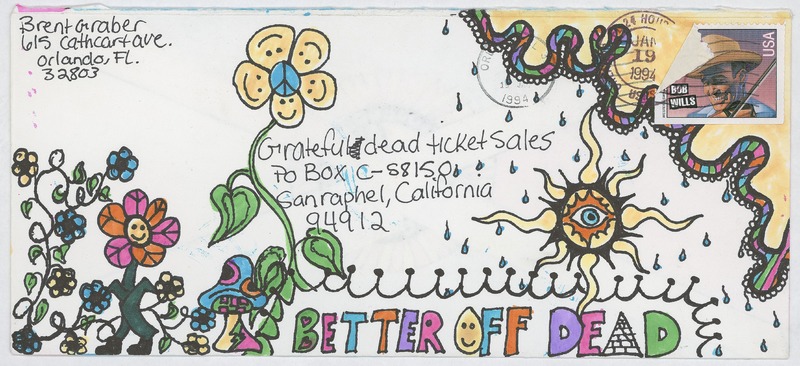 Brent Graber
615 Cathcart ave.
Orlando, FL.
32803
24 HOUR
JAN
19
1994
USA
BOB
WILLS
1994
Grateful dead ticket Sales
PO Box C-S8150
Sanraphel, California
94912
BETTER OFF DEAD